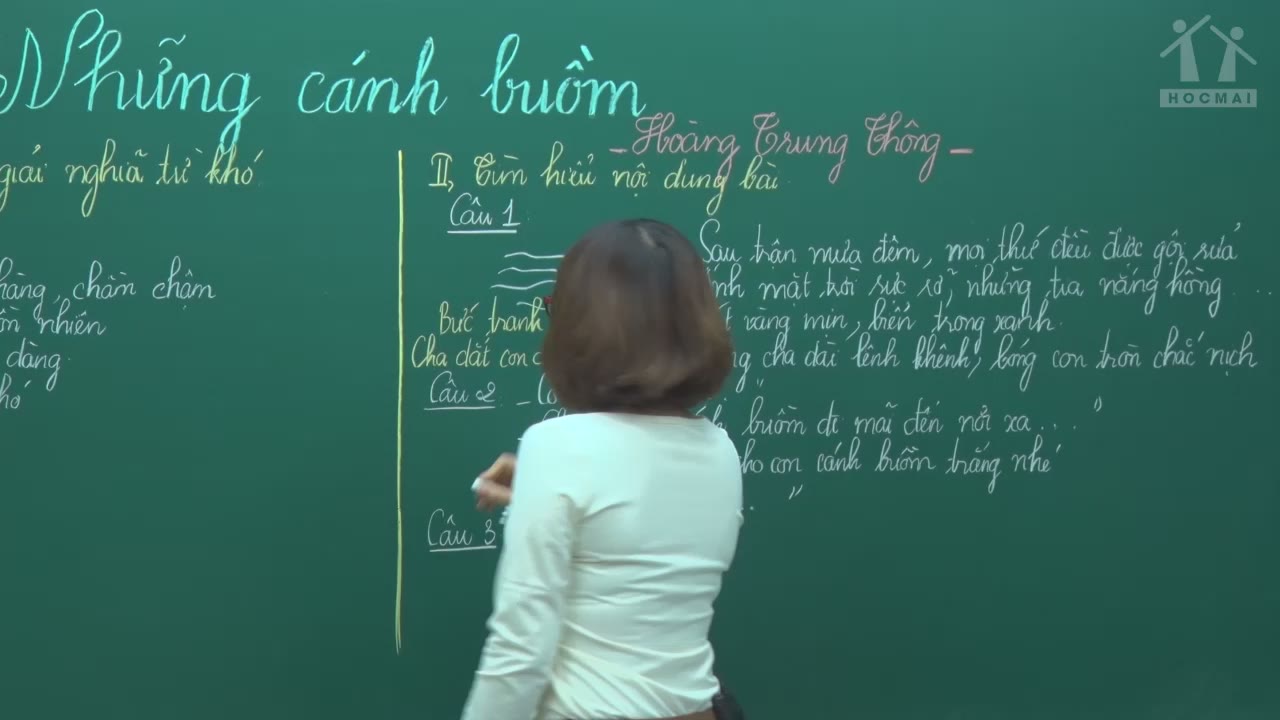 Những cánh buồm
- Hoàng Trung Thông -
giải nghĩa từ khó
hàng, chầm chậm
nhiên
dàng
khó
II, Tìm hiểu nội dung bài
Câu 1
Sau trận mưa đêm, mọi thứ đều được gội rửa
mặt trời rực rỡ, những tia nắng hồng ...
Bức tranh vàng mịn, biển trong xanh.
Cha dắt con cha dài lênh khênh, bóng con tròn chắc nịch
Câu 2 -
buồm đi mãi đến nơi xa...
cho con cánh buồm trắng nhé
Câu 3
HOCMAI